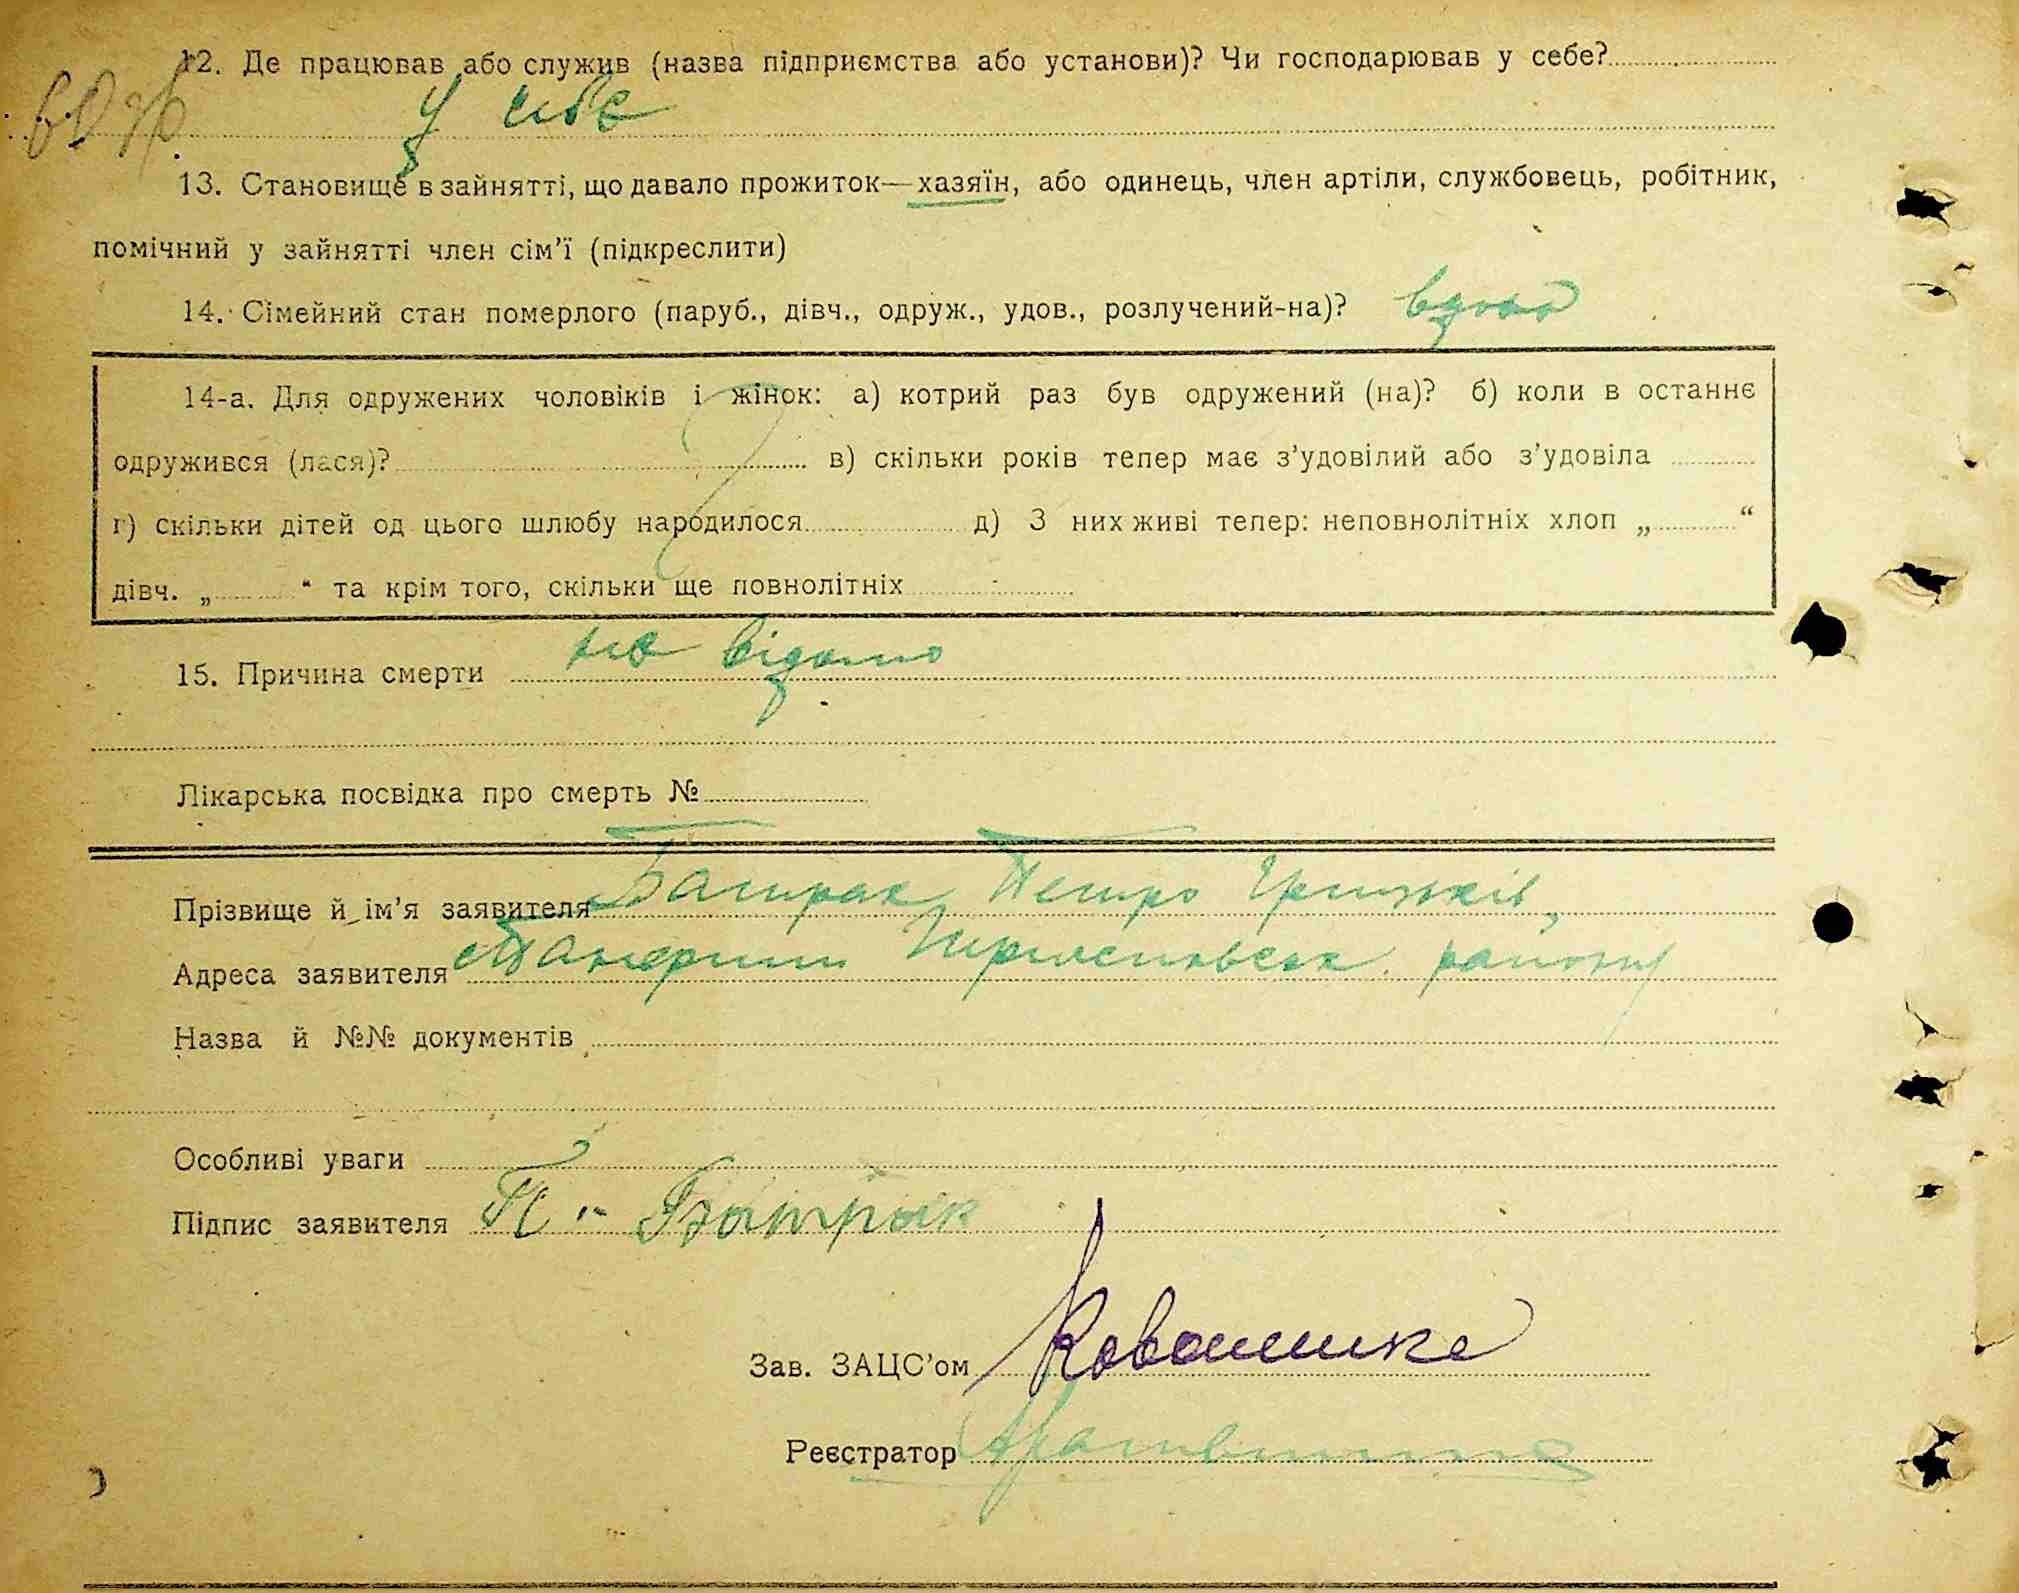 12. Де працював або служив (назва підприємства або установи)? Чи господарював у себе?
у себе
13. Становище в зайнятті, що давало прожиток—хазяїн, або одинець, член артіли, службовець, робітник,
помічний у зайнятті член сім’ї (підкреслити)
14. Сімейний стан померлого (паруб., дівч., одруж., удов., розлучений-на)? вдова
14-а. Для одружених чоловіків і жінок: а) котрий раз був одружений (на)? б) коли в останнє
одружився (лася)? в) скільки років тепер має з’удовілий або з’удовіла
г) скільки дітей од цього шлюбу народилося д) З них живі тепер: неповнолітніх хлоп „ “
дівч. „ “ та крім того, скільки ще повнолітніх
15. Причина смерти не відомо
Лікарська посвідка про смерть №
Прізвище й ім’я заявителя Батрак Петро
Адреса заявителя району
Назва й №№ документів
Особливі уваги
Підпис заявителя П. Батрак
Зав. ЗАЦС’ом
Реєстратор